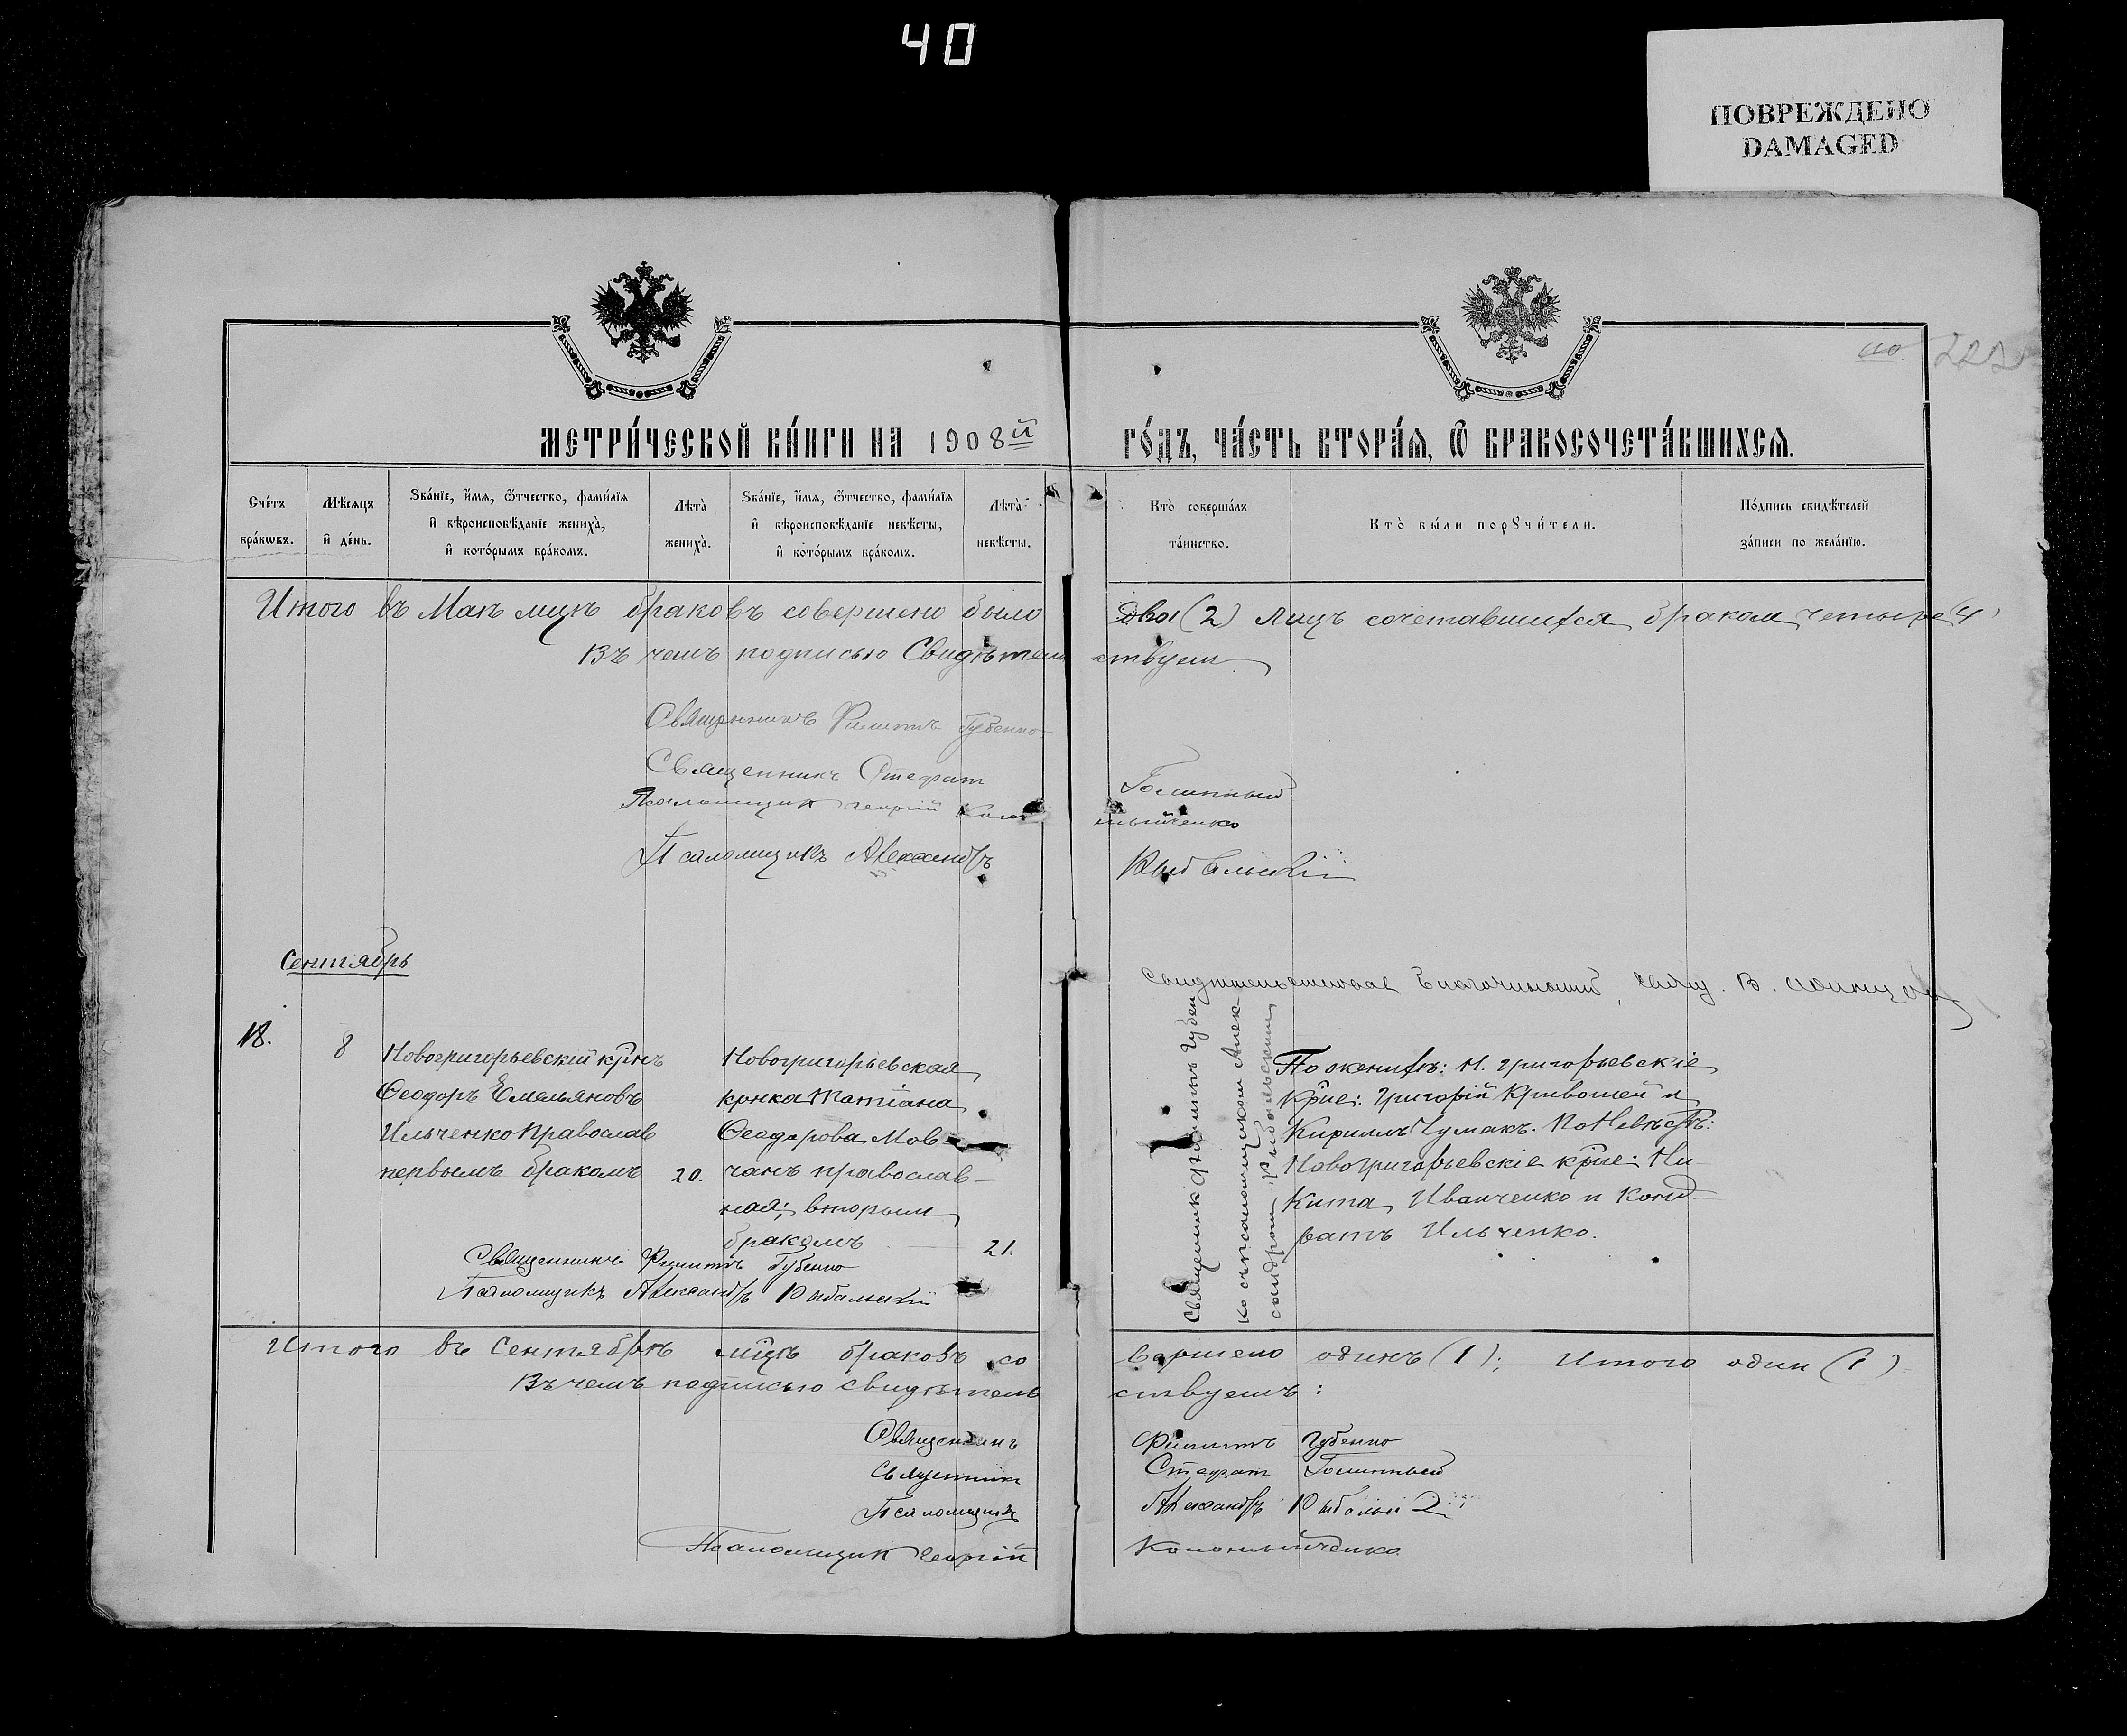 40
ПОВРЕЖДЕНО
DAMAGED
110 222
МЕТРИ́ЧЕСКОЙ КНИ́ГИ НА 1908й ГО́ДЪ, ЧА́СТЬ ВТОРА́Я, Ѿ БРАКОСОЧЕТА́ВШИХСЯ.
Сче́тъ
бра́кѡвъ.
Мѣ́сяцъ
и҆ де́нь.
Ѕва́нїе, и҆́мя, ѻ҆́тчество, фами́лїя
и҆ вѣроисповѣ́данїе жениха̀,
и҆ кото́рымъ бра́комъ.
Лѣта̀
жениха̀.
Ѕва́нїе, и҆́мя, ѻ҆́тчество, фами́лїя
и҆ вѣроисповѣ́данїе невѣ́сты,
и҆ кото́рымъ бра́комъ.
Лѣта̀
невѣ́сты.
Кто̀ соверша́лъ
та́инство.
Кто̀ бы́ли порꙋчи́тели.
По́дпись свидѣ́телей
за́писи по жела́нїю.
Итого въ Маѣ мцѣ браковъ совершено было два (2) лицъ сочетавшихся браком четыре (4
Въ чемъ подписью Свидѣтельствуем
Священникъ Филиппъ Губенко
Священникъ Стефан Голинный
Псаломщик Георгій
Псаломщикъ Александръ Рыбальскій
Сентябрь
Благочинный, свящ. В.
18.
8
Новогригорьевскій крнъ
Ѳеодоръ Емельяновъ
Ильченко Православ
первымъ бракомъ
20.
Новогригорьевская
крнка Татіана
Ѳеодорова Мов
чанъ православ-
ная; вторым
бракомъ
21.
Священник Филиппъ Губен
ко съ псаломщиком Алек
сандром Рыбальским
По женихѣ: Н. григорьевскіе
крне: Григорій Кривошей и
Кириллъ Чумакъ. По Невѣстѣ:
Новогригорьевскіе крне: Ни-
кита Иванченко и Конд-
ратъ Ильченко.
Священникъ Филиппъ Губенко
Псаломщикъ Александръ Рыбальскій
Итого въ Сентябрѣ мцѣ браковъ совершено одинъ (1); Итого один (1)
Въ чемъ подписью свидѣтельствуемъ:
Священникъ Филиппъ Губенко
Священник Стефан Голинный
Псаломщикъ Александръ Рыбальскій
Псаломщик Георгій Коломыйченко